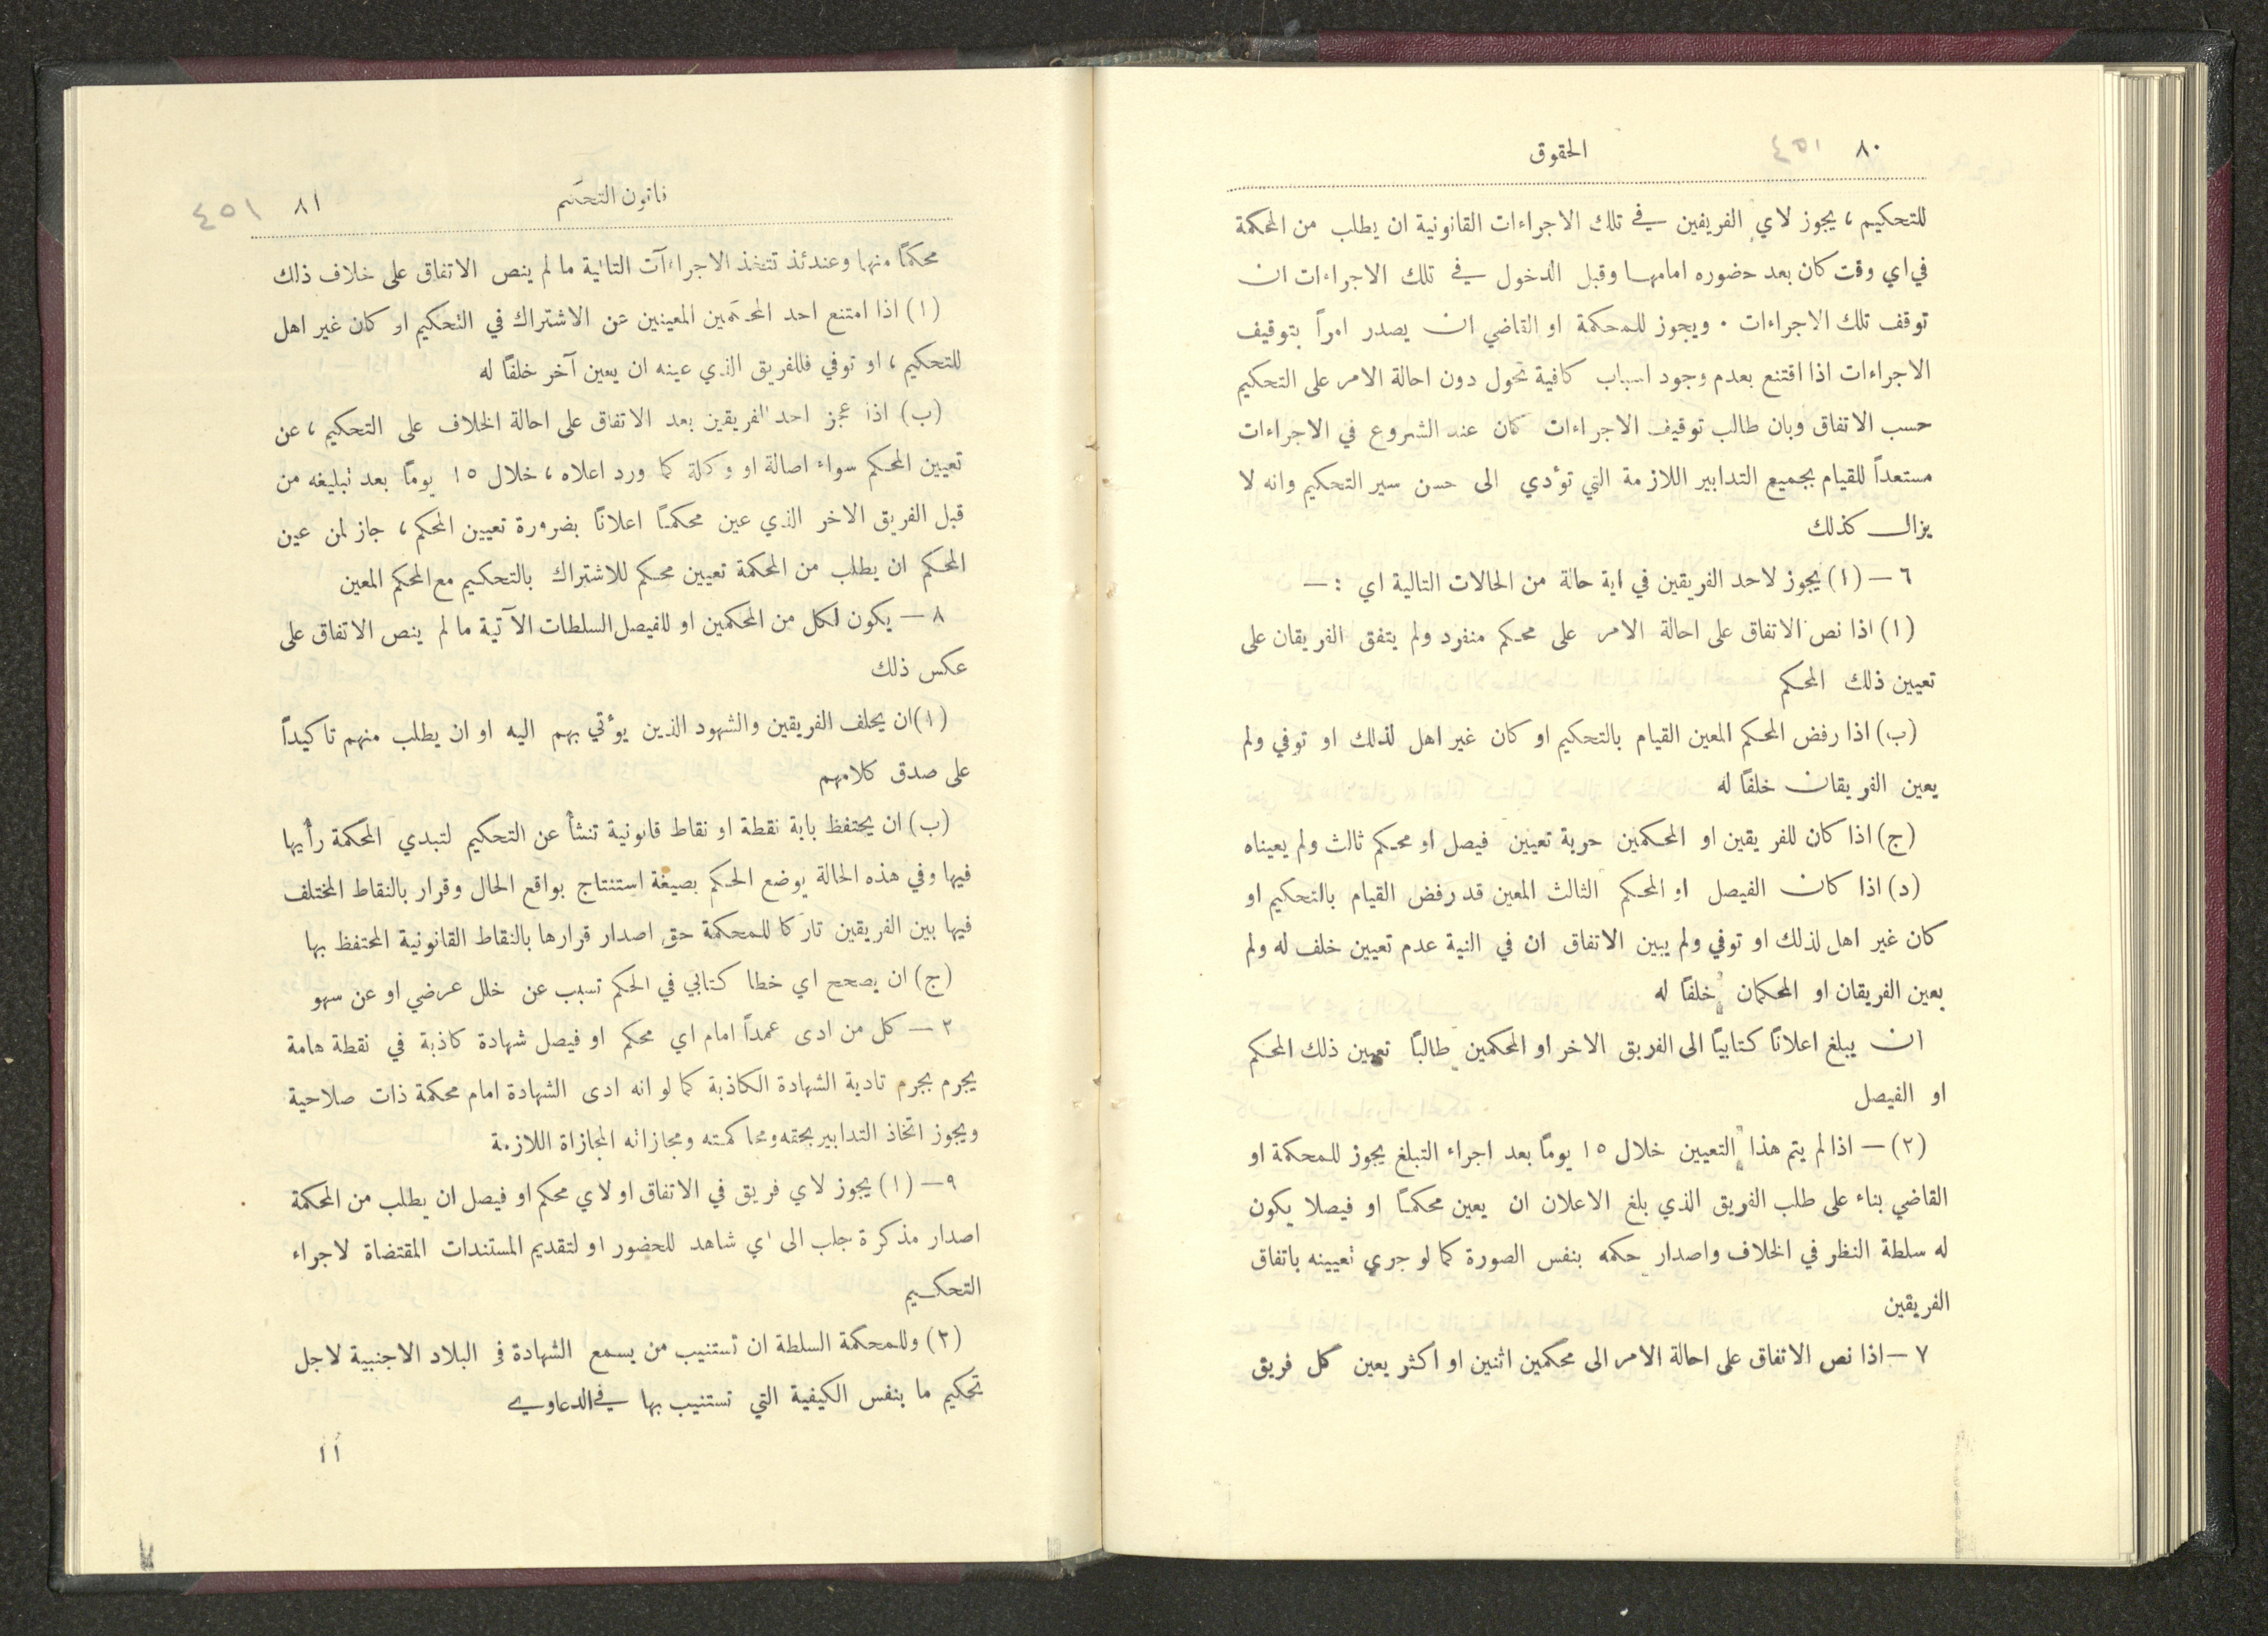 ٨٠ ٤٥١ الحقوق
للتحكيم ، يجوز لاي الفريفين في تلك الاجراءات القانونية ان يطلب من المحكمة
في اي وقت كان بعد حضوره امامها وقبل الدخول في تلك الاجراءات ان
توقف تلك الاجراءات . ويجوز للمحكمة او القاضي ان يصدر امراً بتوقيف
الاجراءات اذا اقتنع بعدم وجود اسباب كافية تحول دون احالة الامر على التحكيم
حسب الاتفاق وبان طالب توقيف الاجراءات كان عند الشروع في الاجراءات
مستعداً للقيام بجميع التدابير اللازمة التي تؤدي الى حسن سير التحكيم وانه لا
يزال كذلك
٦ – (١) يجوز لاحد الفريقين في اية حالة من الحالات التالية اي : –
(ا) اذا نص الاتفاق على احالة الامر على محكم منفرد ولم يتفق الفريقان على
تعيين ذلك المحكم
(ب) اذا رفض المحكم المعين القيام بالتحكيم او كان غير اهل لذلك او توفي ولم
يعين الفريقان خلفاً له
(ج) اذا كان للفريقين او المحكمين حرية تعيين فيصل او محكم ثالث ولم يعيناه
(د) اذا كان الفيصل او المحكم الثالث المعين قد رفض القيام بالتحكيم او
كان غير اهل لذلك او توفي ولم يبين الاتفاق ان في النية عدم تعيين خلف له ولم
يعين الفريقان او المحكمان خلفاً له
ان يبلغ اعلاناً كتابياً الى الفريق الاخر او المحكمين طالباً تعيين ذلك المحكم
او الفيصل
(٢) – اذا لم يتم هذا التعيين خلال ١٥ يوماً بعد اجراء التبلغ يجوز للمحكمة او
القاضي بناء على طلب الفريق الذي بلغ الاعلان ان يعين محكماً او فيصلا يكون
له سلطة النظر في الخلاف واصدار حكمه بنفس الصورة كما لو جرى تعيينه باتفاق
الفريقين
٧ – اذا نص الاتفاق على احالة الامر الى محكمين اثنين او اكثر يعين كل فريق
قانون التحكيم ٨١ ٤٥١
محكماً منها وعندئذ تتخذ الاجراءآت التالية ما لم ينص الاتفاق على خلاف ذلك
(ا) اذا امتنع احد المحكمين المعينين عن الاشتراك في التحكيم او كان غير اهل
للتحكيم ، او توفي فللفريق الذي عينه ان يعين آخر خلفاً له
(ب) اذا عجز احد الفريقين بعد الاتفاق على احالة الخلاف على التحكيم ، عن
تعيين المحكم سواء اصالة او وكالة كما ورد اعلاه ، خلال ١٥ يوماً بعد تبليغه من
قبل الفريق الاخر الذي عين محكماً اعلاناً بضرورة تعيين المحكم ، جاز لمن عين
المحكم ان يطلب من المحكمة تعيين محكم للاشتراك بالتحكيم مع المحكم المعين
٨ – يكون لكل من المحكمين او للفيصل السلطات الآتية ما لم ينص الاتفاق على
عكس ذلك
(ا) ان يحلف الفريقين والشهود الذين يؤتي بهم اليه او ان يطلب منهم تاكيداً
على صدق كلامهم
(ب) ان يحتفظ باية نقطة او نقاط قانونية تنشأ عن التحكيم لتبدي المحكمة رأيها
فيها وفي هذه الحالة يوضع الحكم بصيغة استنتاج بواقع الحال وقرار بالنقاط المختلف
فيها بين الفريقين تاركا للمحكمة حق اصدار قرارها بالنقاط القانونية المحتفظ بها
(ج) ان يصحح اي خطا كتابي في الحكم تسبب عن خلل عرضي او عن سهو
٢ – كل من ادى عمداً امام اي محكم او فيصل شهادة كاذبة في نقطة هامة
يجرم بجرم تادية الشهادة الكاذبة كما لو انه ادى الشهادة امام محكمة ذات صلاحية
ويجوز اتخاذ التدابير بحقه ومحاكمته ومجازاته المجازاة اللازمة
٩ – (١) يجوز لاي فريق في الاتفاق او لاي محكم او فيصل ان يطلب من المحكمة
اصدار مذكرة جلب الى اي شاهد للحضور او لتقديم المستندات المقتضاة لاجراء
التحكيم
(٢) وللمحكمة السلطة ان تستنيب من يسمع الشهادة في البلاد الاجنبية لاجل
تحكيم ما بنفس الكيفية التي تستنيب بها في الدعاوي
١١